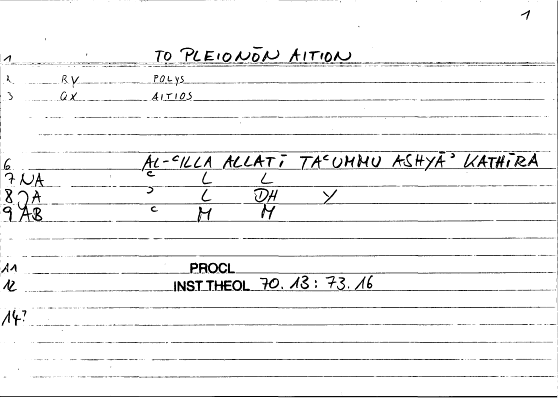 1
1 TO PLEIONŌN AITION
2 RV POLYS
3 QX AITIOS
6 AL-ᶜILLA ALLATĪ TAᶜUMMU ASHYĀʾ KATHĪRA
7 NA ᶜ L L
8 JA ʾ L DH Y
9 AB ᶜ M M
11 PROCL
12 INST THEOL 70.13: 73.16
14?